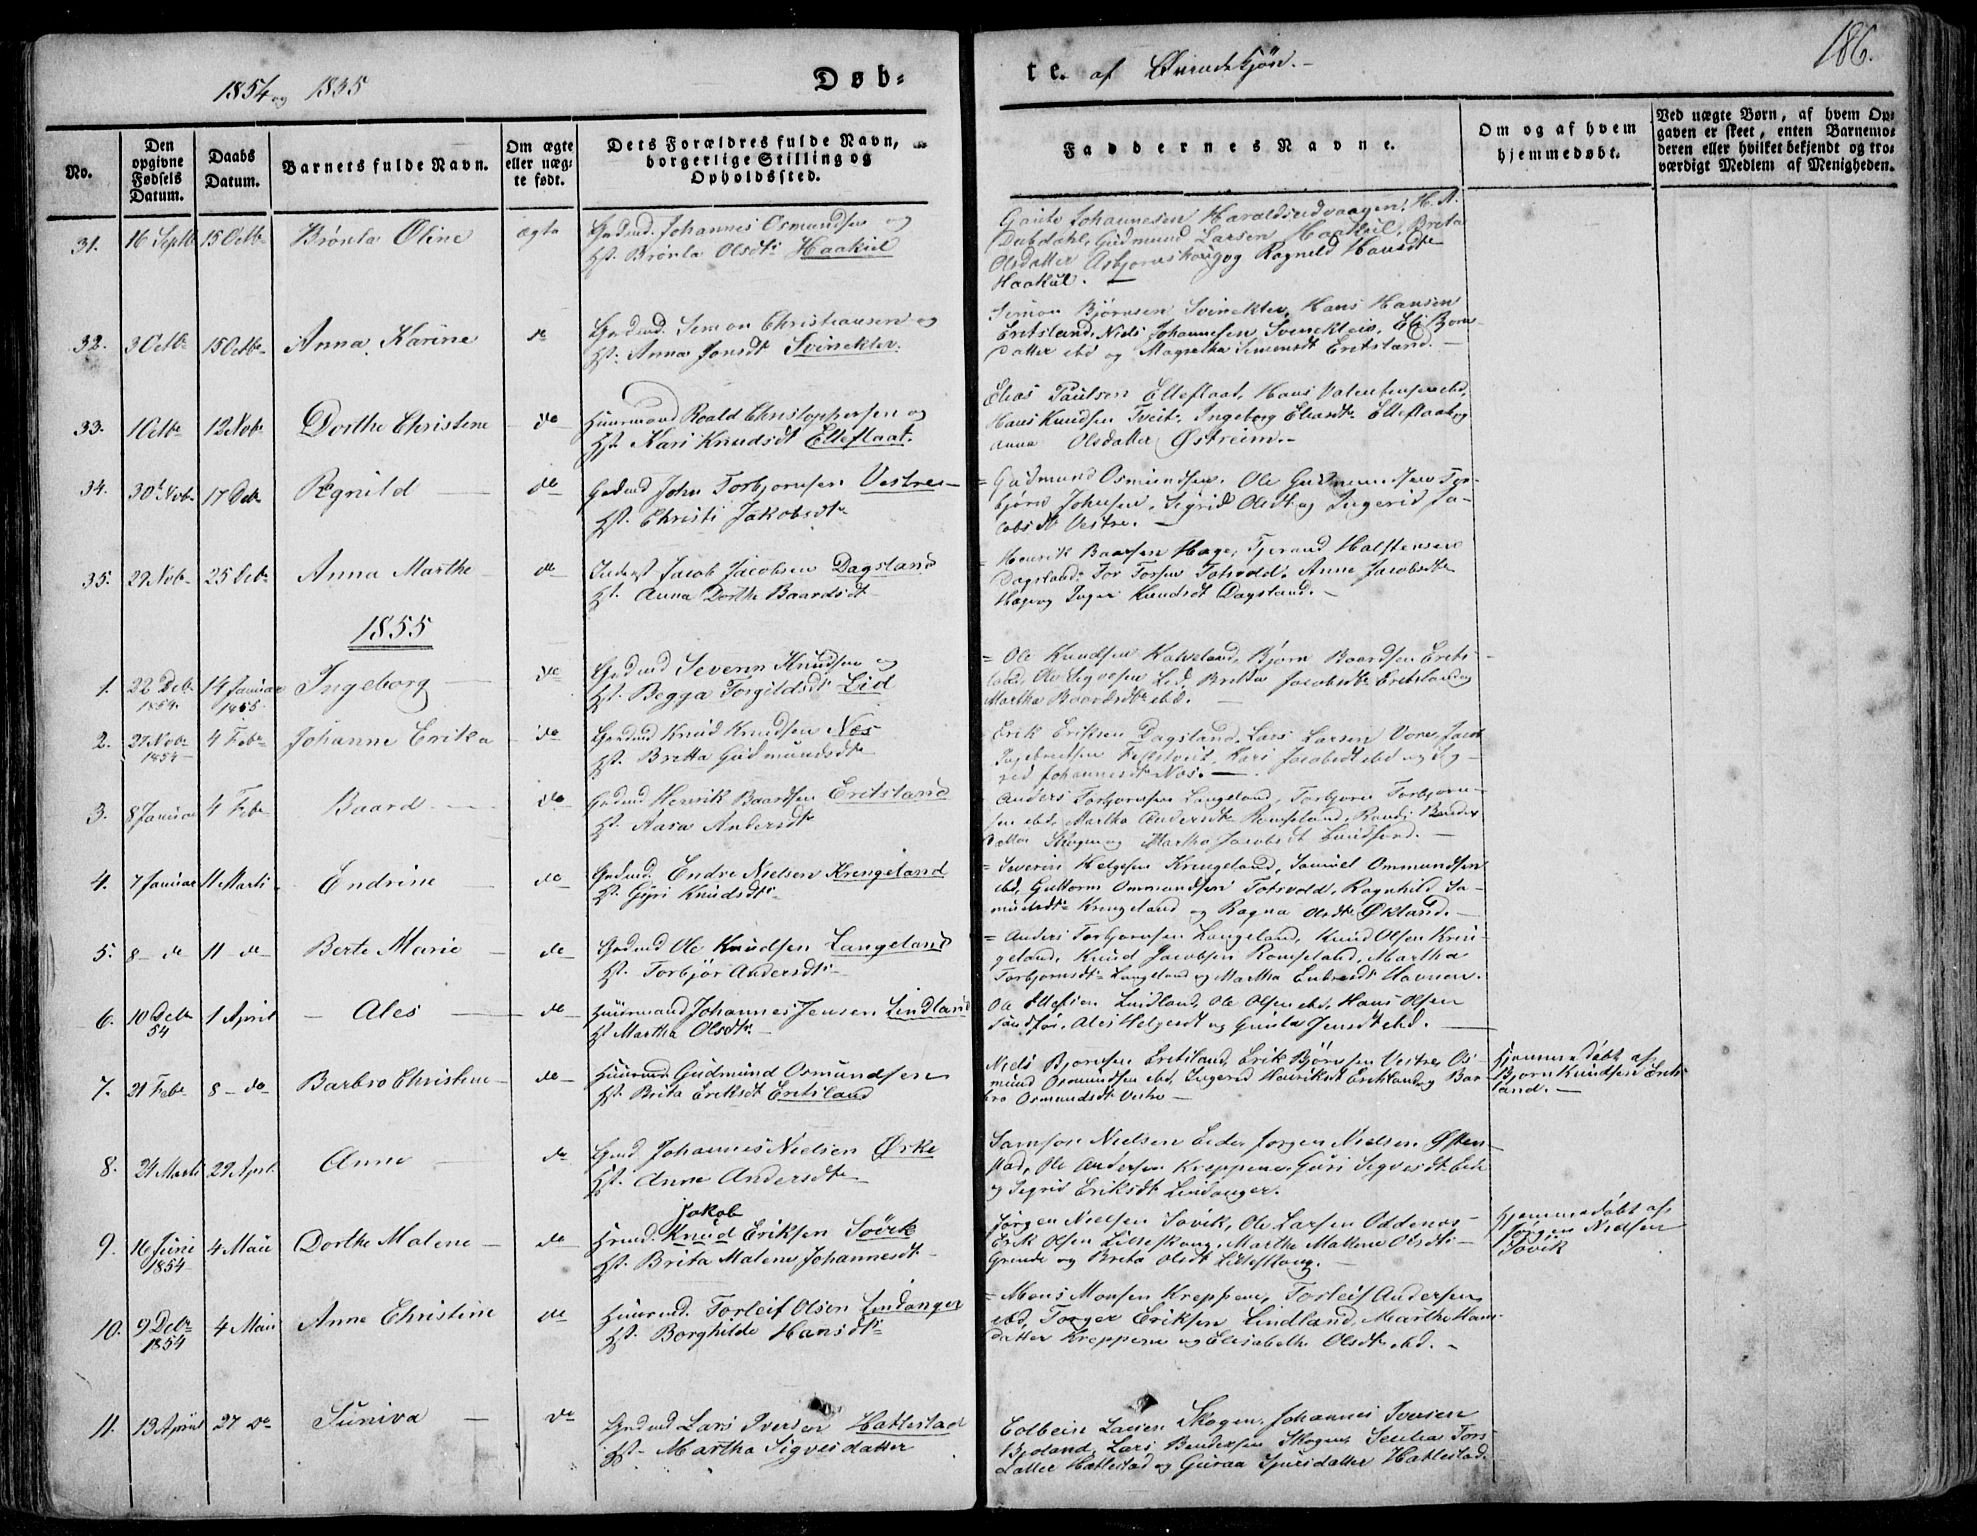 1854 og 1855
Døb-
te. af
186.
No.
Den opgivne Fødsels Datum.
Daabs Datum.
Barnets fulde Navn.
Om ægte eller uæg- te født.
Dets Forældres fulde Navn, borgerlige Stilling og Opholdssted.
Faddernes Navne.
Om og af hvem hjemmedøbt.
Ved uægte Børn, af hvem Op- gaven er skeet, enten Barnemo- deren eller hvilket bekjendt og tro- værdigt Medlem af Menigheden.
31. 16 Septb 15 Octbr Brønla Oline ægte Grdmd. Johannes Osmundsen og
Hst. Brønla Olsdtr Haakul
Johannesen H. A.
Gudmund Larsen Haakul, Breta
Olsdatter og Ragnild Hansdtr
Haakul.
32. 3 Octbr 15 Octbr Anna Karine do Grdmd. Simon Christiansen og
Hst. Anna Jonsdt Svinekler.
Simon Bjørnsen Svinekler, Hans Hansen
Eretsland, Niels Johannesen
datter ibd og Simonsdt Eretsland.
33. 1 Octbr 12 Nobr Dorthe Christine do Huusmand Roald Christophersen og
Hst. Kari Knudsdt Elleflaat.
Elias Paulsen Elleflaat, Hans Valentinsen ibd,
Hans Knudsen Tveit, Ingeborg Eliasdtr Elleflaat og
Anna Olsdatter Østreim.
34. 30t Nobr 17 Debr Regnild do Grdmd John Torbjørnsen Vestre
Hst. Christi Jakobsdtr
Gudmund Osmundsen, Ole Gudmundsen Tor-
bjørn Johnsen, Sigrid Olsdt og Ingerid Ja-
cobsdt Vestre.
35. 29 Nobr 25 Debr Anna Marthe do Inderst Jacob Jacobsen Dagsland
Hst. Anna Dorthe Baardsdt
Henrik Baarsen Hage, Tjerand Halstensen
Dagsland, Tor Torsen Totsvold, Anne Jacobsdtr
Hage og Inger Knudsdt Dagsland.
1855
1. 22 Debr 1854 14 Januar 1855 Ingeborg do Grdmd Severin Knudsen og
Hst. Begga Torgildsdt Lid
Ole Knudsen Kalveland, Bjørn Baardsen Erets-
land, Ole Sigvesen Lid, Britha Jacobsdtr Eretsland og
Martha Baardsdtr ibd.
2. 27 Nobr 1854 4 Febr Johanne Erika do Grdmd Knud Knudsen Nes
Hst. Britta Gudmundsdtr
Erik Eriksen Dagsland, Lars Larsen Vore, Jacob
Kari Jacobsdt ibd og Sig-
rid Johannesdt Nes.
3. 8 Januar 4 Febr Baard do Grdmd Henrik Baardsen Eretsland
Hst. Aasa Andersdtr
Anders Torbjørnsen Langeland, Torbjørn Torbjørn-
sen ibd, Martha Andersdtr Romseland,
datter Skogen og Martha Jacobsdt
4. 7 Januar 11 Marts Endrine do Grdmd. Endre Nielsen Krengeland
Hst. Gyri Knudsdtr
Severin Helgesen Krengeland, Samuel Ommundsen
ibd, Guttorm Ommundsen Totsvold, Ragnhild Sa-
muelsdtr Krengeland og Ragna Olsdtr Økland.
5. 8 do 11 do Berte Marie do Grdmd Ole Knudsen Langeland
Hst. Torbjør Andersdtr
Anders Torbjørnsen Langeland, Knud Olsen Kren-
geland, Knud Jacobsen Romseland, Martha
Torbjørnsdtr Langeland og Martha Endresdt Havnen.
6. 10 Debr 54 1 April Ales do Huusmand Johannes Jensen Lindland
Hst Martha Olsdtr
Ole Lindland, Ole Olsen ibd, Hans Olsen
Ales Helgesdt og Jensdt ibd.
7. 21 Febr 8 do Barbro Christine do Huusmd. Gudmund Osmundsen
Hst. Brita Eriksdt Eretsland
Niels Bjørnsen Eretsland, Erik Bjørnsen Vestre, Os-
mund Osmundsen ibd, Ingerid Henriksdt Eretsland og Bar-
bro Osmundsdt Vestre
Hjemmedøbt af
Bjørn Knudsen Erets-
land.
8. 24 Marts 29 April Anne do Grmd Johannes Nielsen Ørke
Hst. Anne Andersdtr
Samson Nielsen Eide, Jørgen Nielsen Østen-
stad, Ole Andersen Kreppene, Guri Sigvesdt Eide
og Sigrid Eriksdt Lindanger.
9. 16 Juni 1854 4 Maii Dorthe Malene do Jakob
Hmd. Knud Eriksen Søvik
Hst. Brita Malene Johannesdt
Jørgen Nielsen Søvik, Ole Larsen Oddenes
Erik Olsen Lilleskoug, Marthe Mallene Olsdtr
Grinde og Breta Olsdt Lilleskoug.
Hjemmedøbt af
Jørgen Nielsen
Søvik
10. 9 Debr 1854 4 Maii Anne Christine do Huusmd. Torleif Olsen Lindanger
Hst. Borghilde Hansdtr
Mons Monsen Kreppene, Torleif Andersen
ibd, Torger Eriksen Lindland, Marthe Hans-
datter Kreppene og Elisabeth Olsdtr ibd.
11. 13 April 27 do Suniva do Grdmd Lars Iversen Hatlestad
Hst. Martha Sigvesdatter
Colbein Larsen Skogen, Johannes Iversen
Bjoland, Lars Bendiksen Skogen, Tors-
datter Hatlestad og Guraa Sjursdatter Hatlestad.